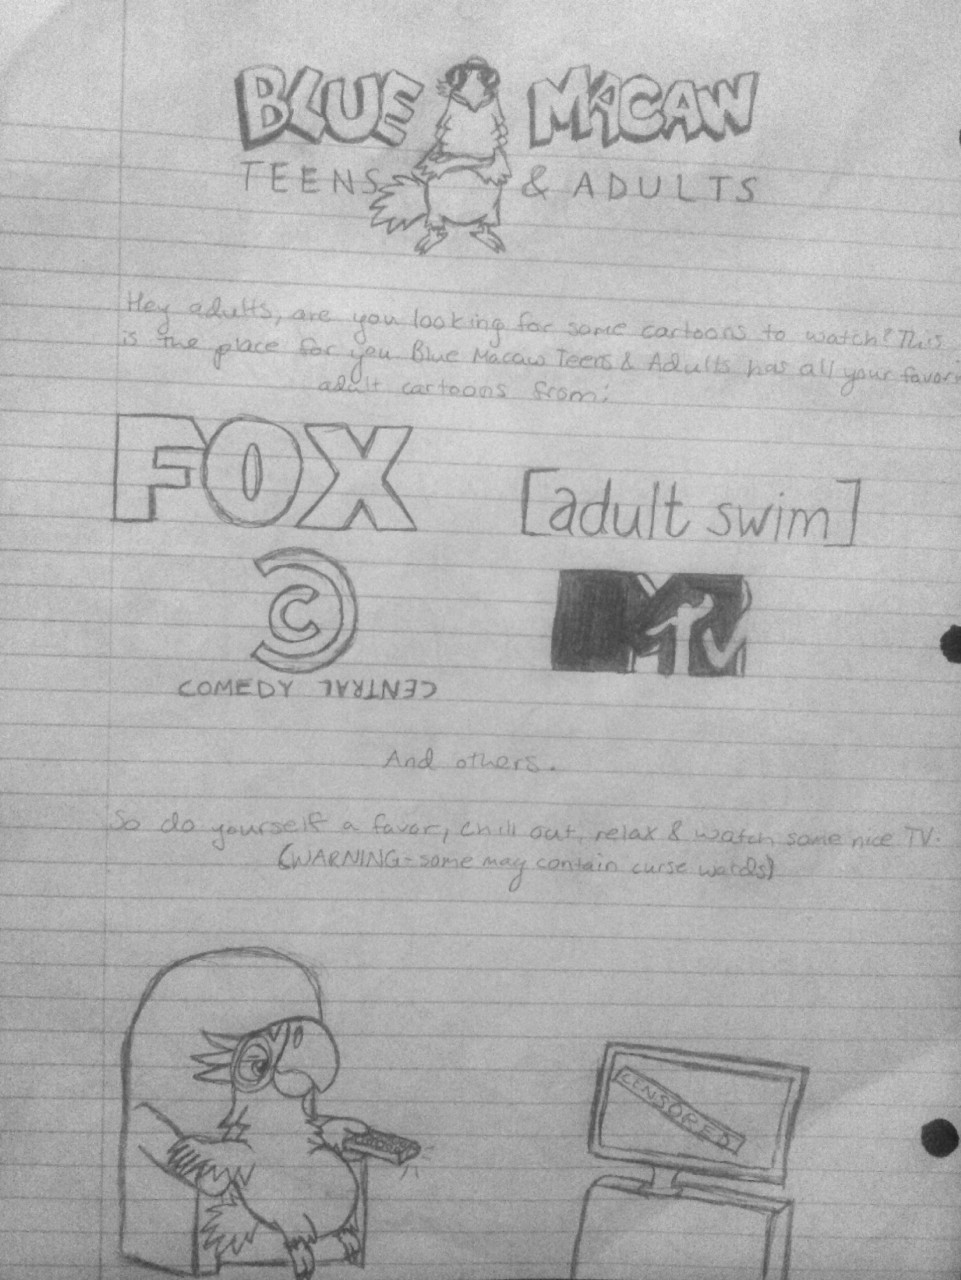 BLUE MACAW
TEENS & ADULTS
Hey adults, are you looking for some cartoons to watch? This
is the place for you Blue Macaw Teens & Adults has all your favori
adult cartoons from:
FOX [adult swim]
C
COMEDY CENTRAL
MTV
And others.
So do yourself a favor, chill out, relax & watch some nice TV.
(WARNING-some may contain curse words)
CENSORED